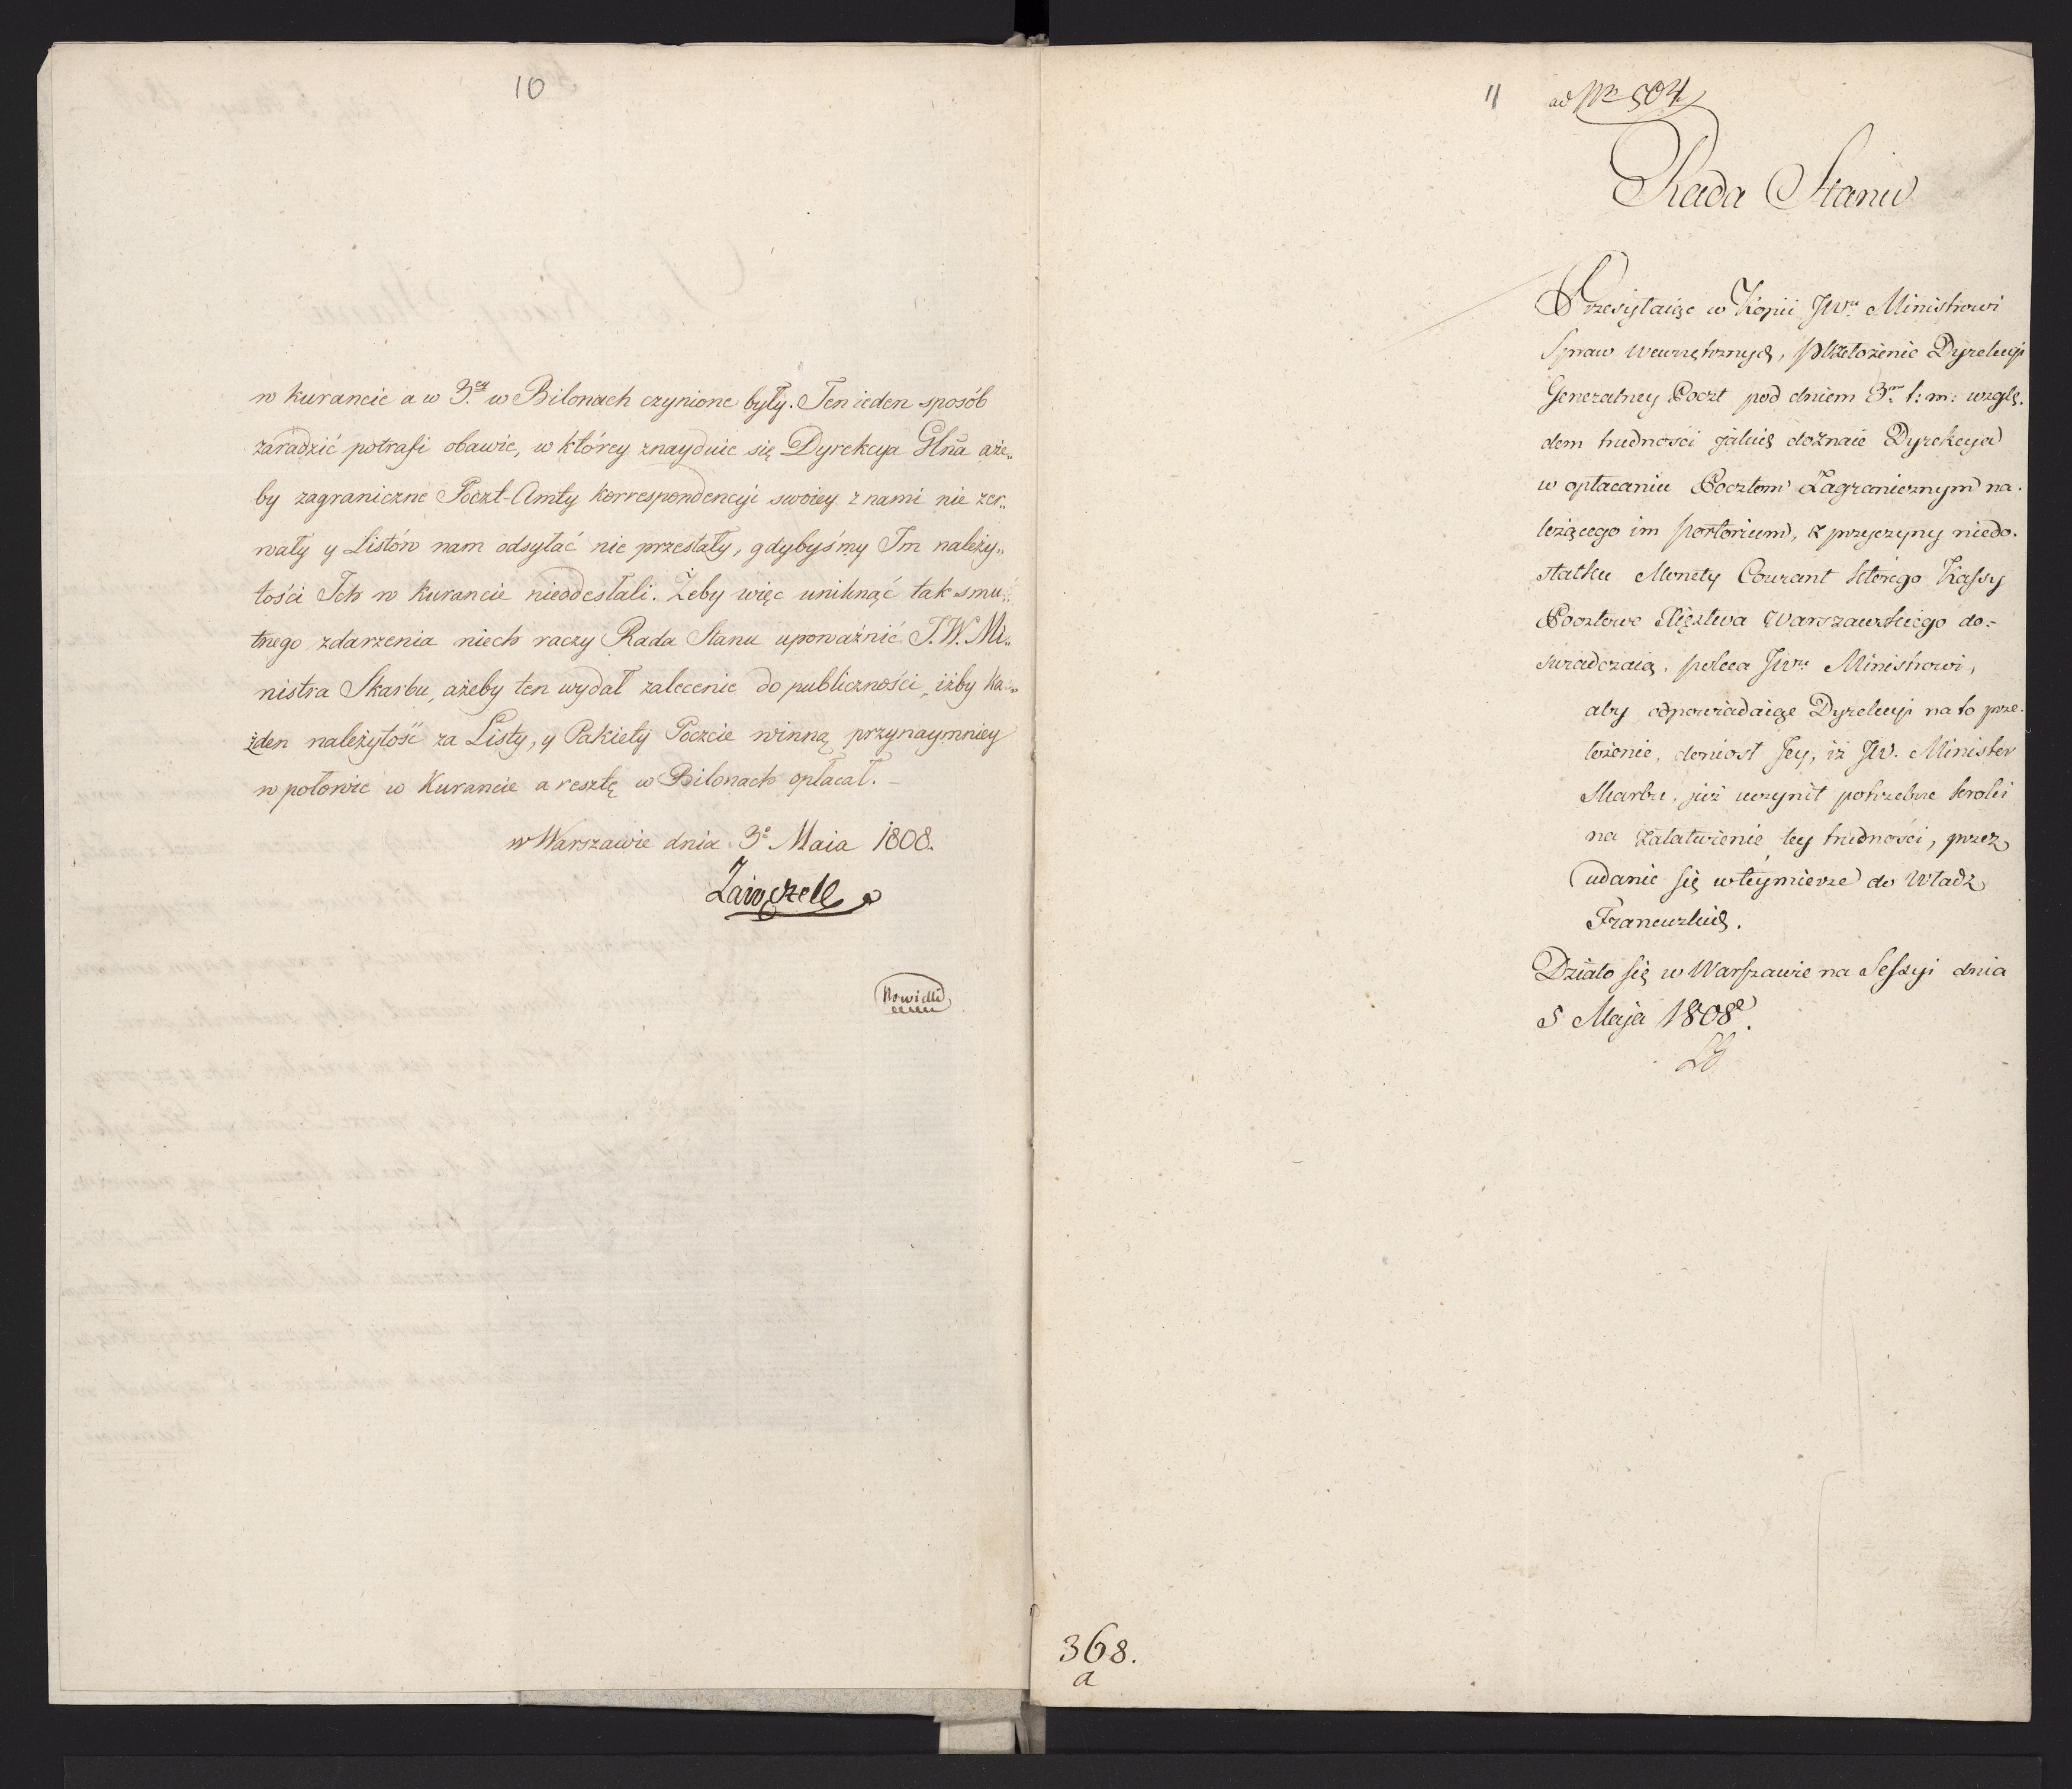 10
w kurancie a w 3.ey w Bilonach czynione były. Ten ieden sposób
zaradzić potrafi obawie, w którey znayduie się Dyrekcya Głna aże„
by zagraniczne Poczt-Amty korrespondencyi swoiey z nami nie zer„
wały y Listów nam odsyłać nie przestały, gdybyśmy Im należy„
tości Ich w kurancie nieoddestali. Żeby więc uniknąć tak smu„
tnego zdarzenia niech raczy Rada Stanu upoważnić J.W. Mi„
nistra Skarbu, ażeby ten wydał zalecenie do publiczności, iżby Ka„
żden należytość za Listy, y Pakiety Poczcie winną przynaymniey
w połowie w Kurancie a resztę w Bilonach opłacał. –
w Warszawie dnia 3o Maia 1808.
Zaiączek
11
ad Nro 504
Rada Stanu
Przesyłaiąc w Kopii JWu Ministrowi
Spraw Wewnętrznych, przełożenie Dyrekcyi
Generalney Poczt pod dniem 3m t: m: wzglę.
dem trudności jakich doznaie Dyrekcya
w opłacaniu Pocztom Zagranicznym na.
leżącego im portorium, z przyczyny niedo.
statku Monety Courant którego Kassy
Pocztowe Xięstwa Warszawskiego do=
świadczaią, poleca JWu Ministrowi,
aby odpowiadaiąc Dyrekcyi na to prze.
łożenie, doniosł Jey, iż JW. Minister
Skarbu, już uczynił potrzebne kroki
na załatwienie tey trudności, przez
udanie się w teymierze do Władz
Francuzkich.
Działo się w Warszawie na Sessyi dnia
5 Maja 1808.
368.
a